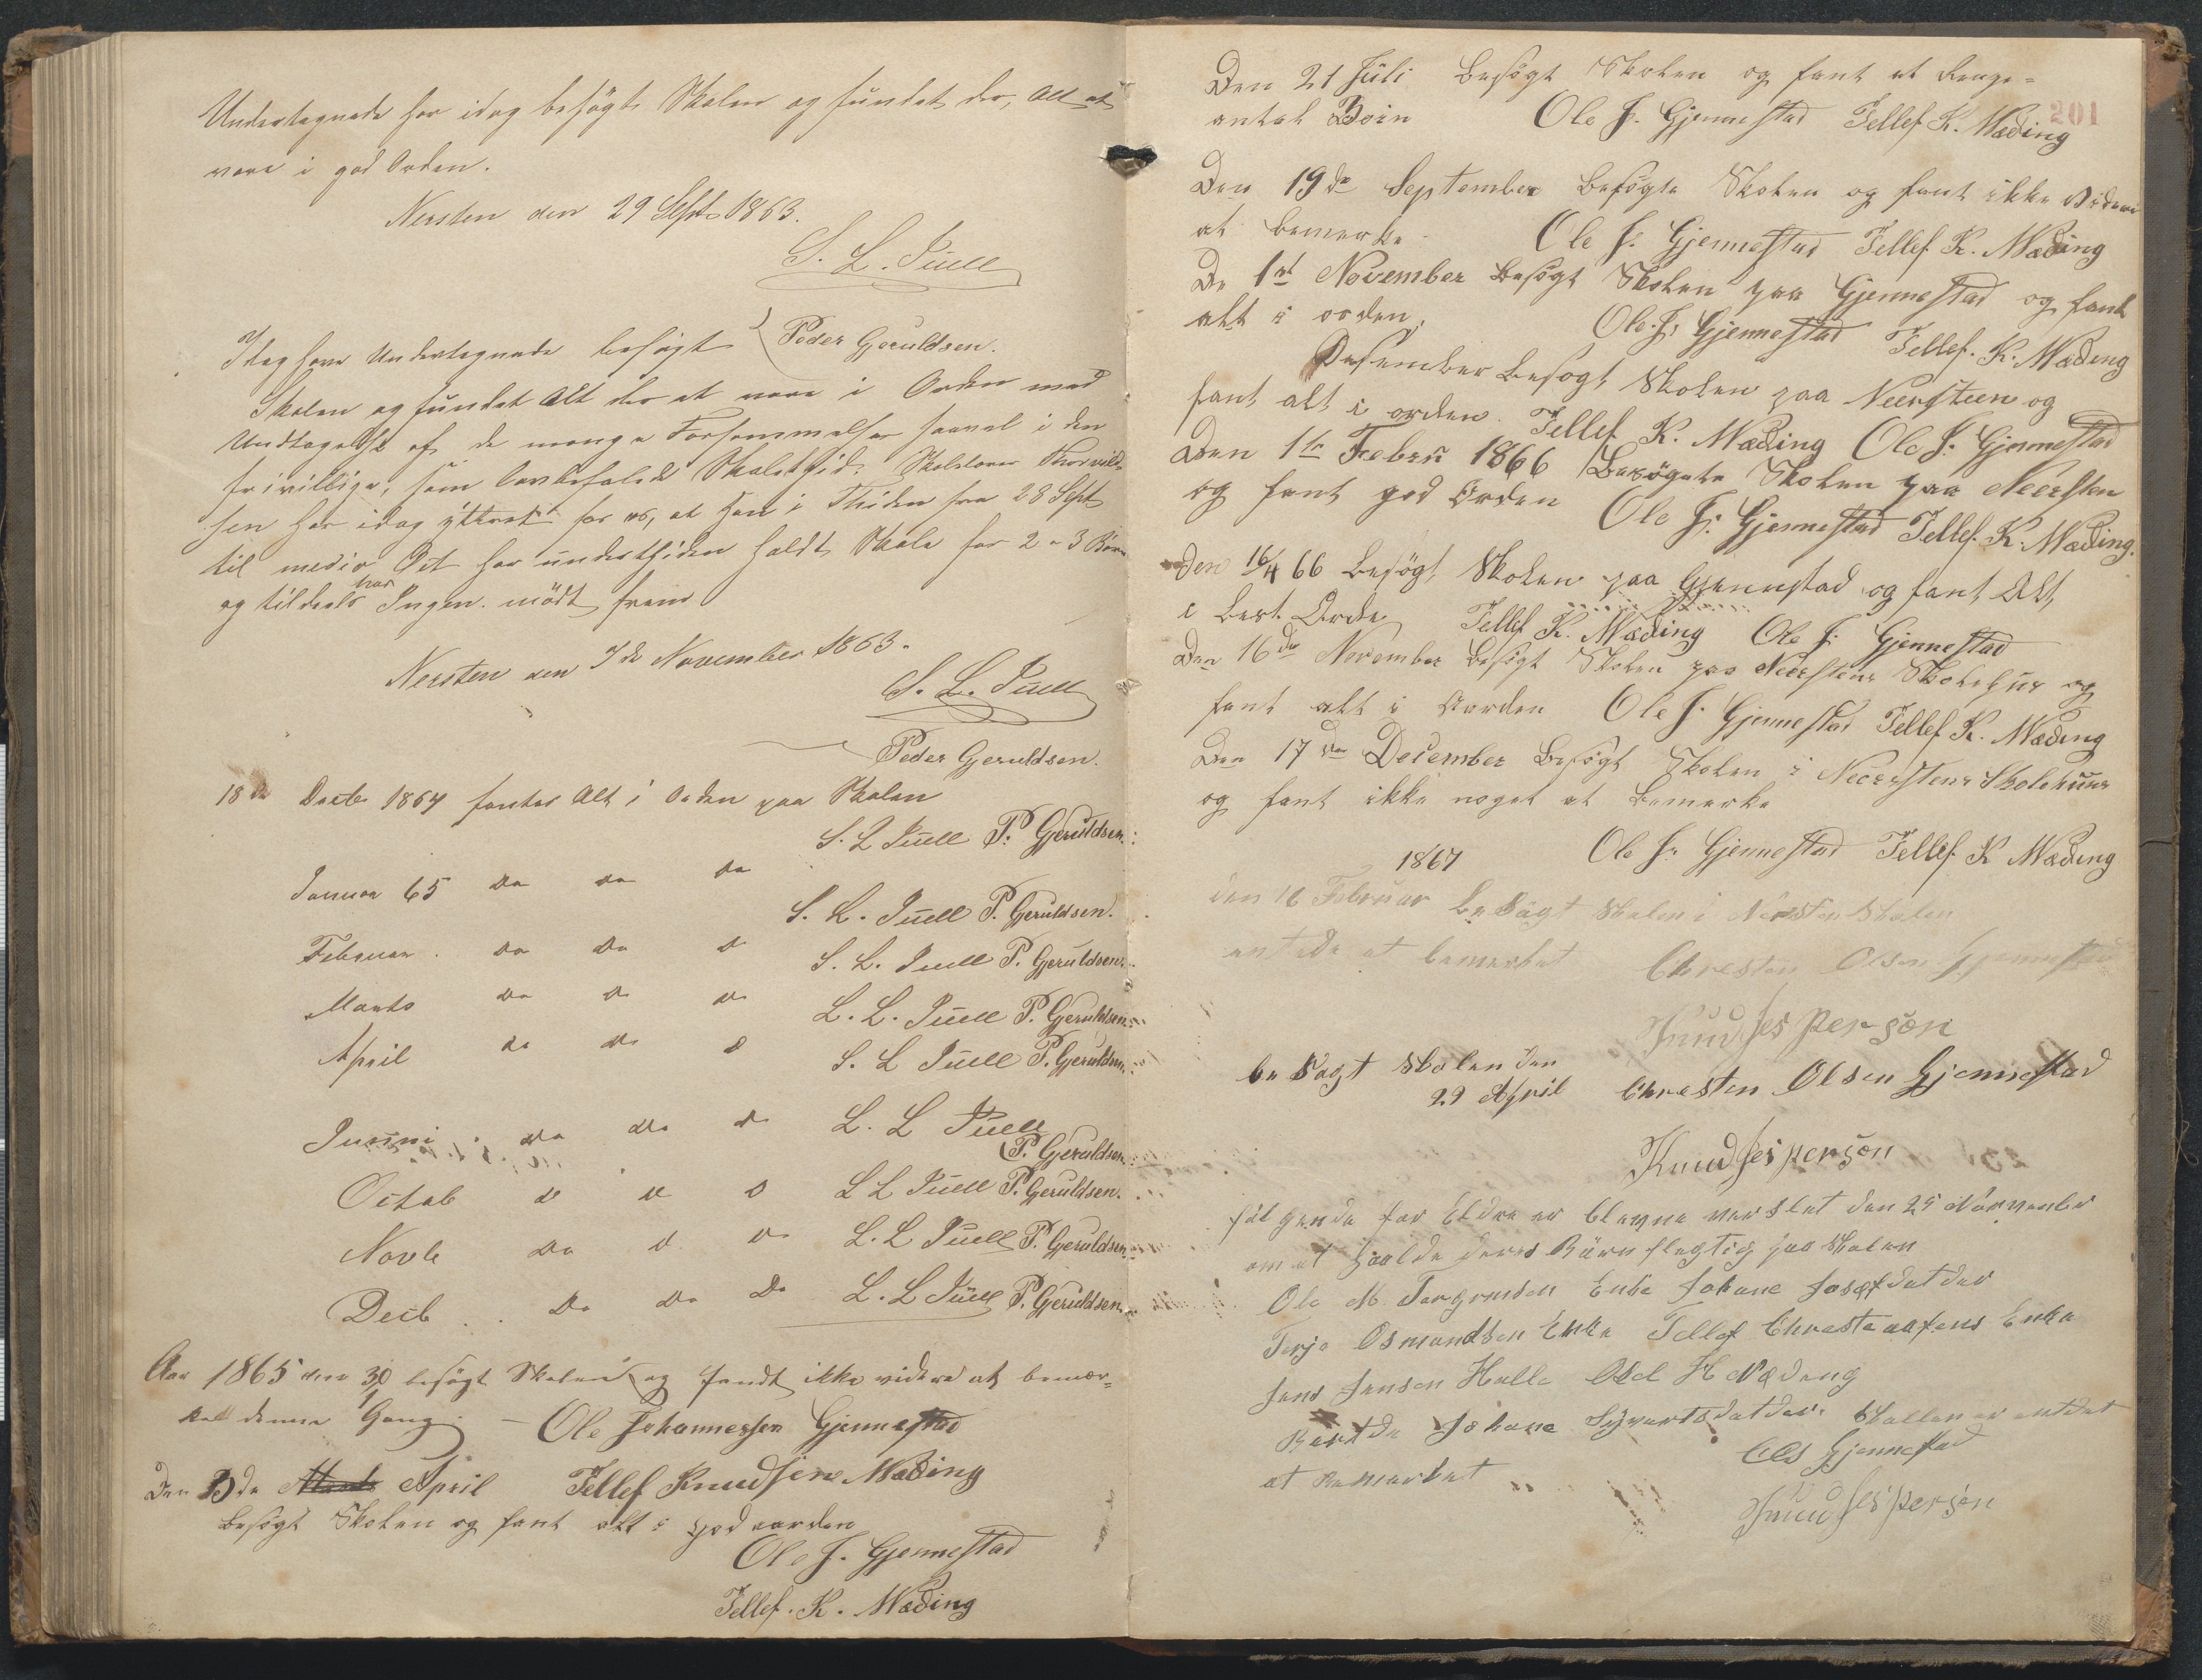 Undertegnede har idag besögt Skolen og fundet der, Alt at
være i god Orden.
Nersten den 29 Septr 1863.
S. L. Juell
Peder Geruldsen.
Idag have Undertegnede besögt
Skolen og fundet Alt der at være i Orden med
Undtagelse af de mange Forsömmelser saavel i den
frivillige, som lovbefalede Skoletid. Skolelærer
sen har idag yttret for os, at han i Tiden fra 28 Sept
til medio Oct har undertiden holdt Skole for 2 a 3 Börn
og tildeels har Ingen mödt frem
Nersten den 7de November 1863.
S. L. Juell
Peder Geruldsen.
18de Decbr 1864 fantes Alt i Orden paa Skolen
S. L Juell P. Geruldsen
Januar 65 do do do
S. L. Juell P. Geruldsen.
Februar. do do d S. L. Juell P. Geruldsen
Marts do do do L. L. Juell P. Geruldsen
April do do d S. L Juell P. Geruldsen
Junni. do do do L. L Juell
P. Geruldsen
Octob d d d L L Juell P. Geruldsen.
Novb do d do L. L Juell P. Geruldsen
Decb.. do do do L. L Juell P. Geruldsen
Aar 1865 den 30/1 besögt Skolen og fandt ikke videre at bemær=
ket denne Gang. – Ole Johannessen Gjennestad
Den 3de Marts April Tellef Knudsen Mæding
Besögt Skolen og fant alt i god oorden
Ole J. Gjennestad
Tellef. K. Mæding
201
Den 21 Juli Besögt Skolen og fant et Ringe=
antal Börn Ole J. Gjennestad Tellef K. Mæding
Den 19de September Besögte Skolen og fant ikke videre
at bemerke Ole J. Gjennestad Tellef K. Mæding
De 1st November Besögt Skolen paa Gjennestad og fant
alt i orden. Ole. J. Gjennestad Tellef. K. Mæding
Desember besögt Skolen paa Neersteen og
fant alt i orden. Tellef K. Mæding Ole J. Gjennestad
Den 1te Febru 1866 Besögete Skolen paa Neersten
og fant god Orden Ole J. Gjennestad Tellef. K. Mæding.
Den 16/4 66 besögt Skolen paa Gjennestad og fant Alt
i best Orden Tellef K. Mæding Ole J. Gjennestad
Den 16de November besögt Skolen paa Neerstens Skolehus og
fant alt i Oorden Ole J. Gjennestad Tellef K. Mæding
Den 17de December Besögt Skolen i Neerstens Skolehuus
og fant ikke noget at Bemerke
Ole J. Gjennestad Tellef K Mæding
1867
den 18 Februar besögt skolen i Nersten Skolen
entede at bemerket Chresten Olsen Gjennestad
Knud Jesperson
besögt skolen den
29 April Chresten Olsen Gjennestad
Knud Jesperson
fölgende for Eldre er blevne varslet den 25 November
om at haalde deres Börn flegtig paa Skolen
Ole M. Torgrensen Enke Johane Josefdatder
Terje Osmundsen Enke Tellef Enke
Jens Jensen Halle H Mædeng
Johane Syvertsdatder. Skollen er entedet
at Bemerket Ols Gjennestad
Knud Jesperson